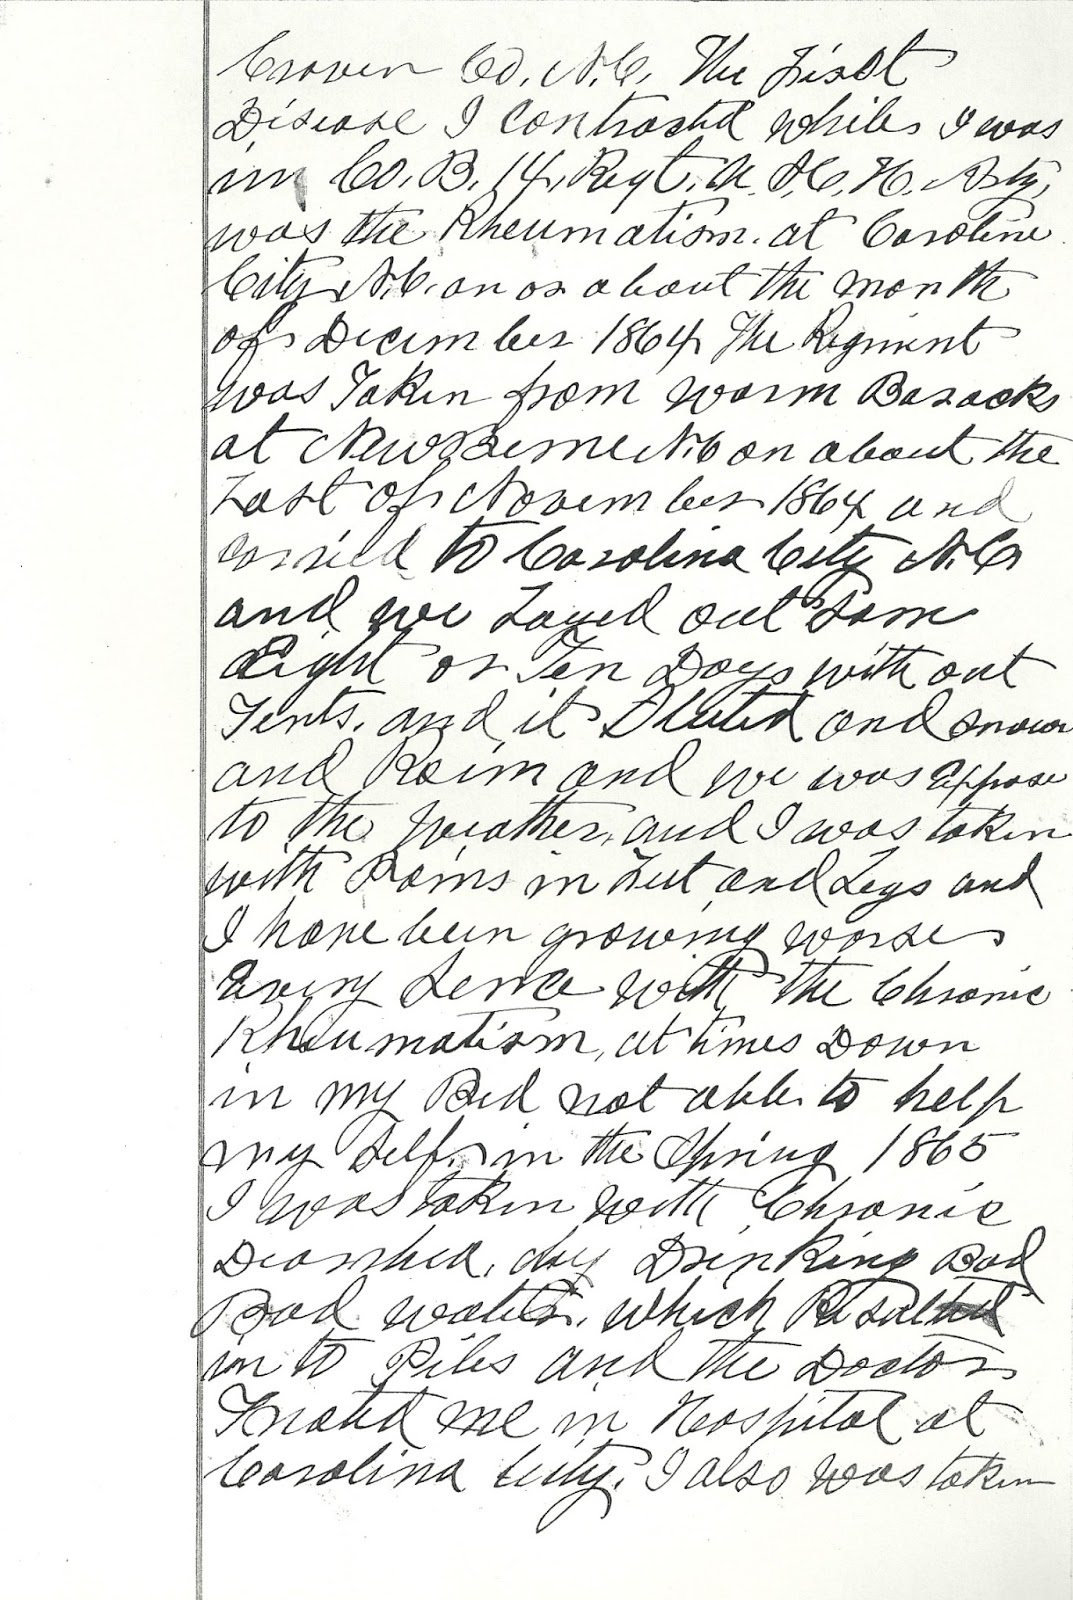 Craven Co. N.C. The First
Disease I contracted whiles I was
in Co. B. 14, Regt. U. S. C. H. Arty,
was the Rheumatism. at Caroline
City N.C. on or about the month
of December 1864 The Regment
was Taken from warm Baracks
at NewBerne N.C on about the
Last of November 1864 and
carried to Carolina City N.C
and we Layed out Som
Eight or Ten Days with out
Tents. and it Sleeted and snow
and Rain and we was Appose
to the weather, and I was taken
with Pains in Feet and Legs and
I have been growing worse
Every Sence with the Chronic
Rheumatism, at times Down
in my Bed not able to help
my Self. in the Spring 1865
I was taken with Chronic
Diarrhea, by Drinking Bad
Bad water. which Resulted
in to Piles and the Doctor
Treated me in Hospital at
Carolina City. I also was taken